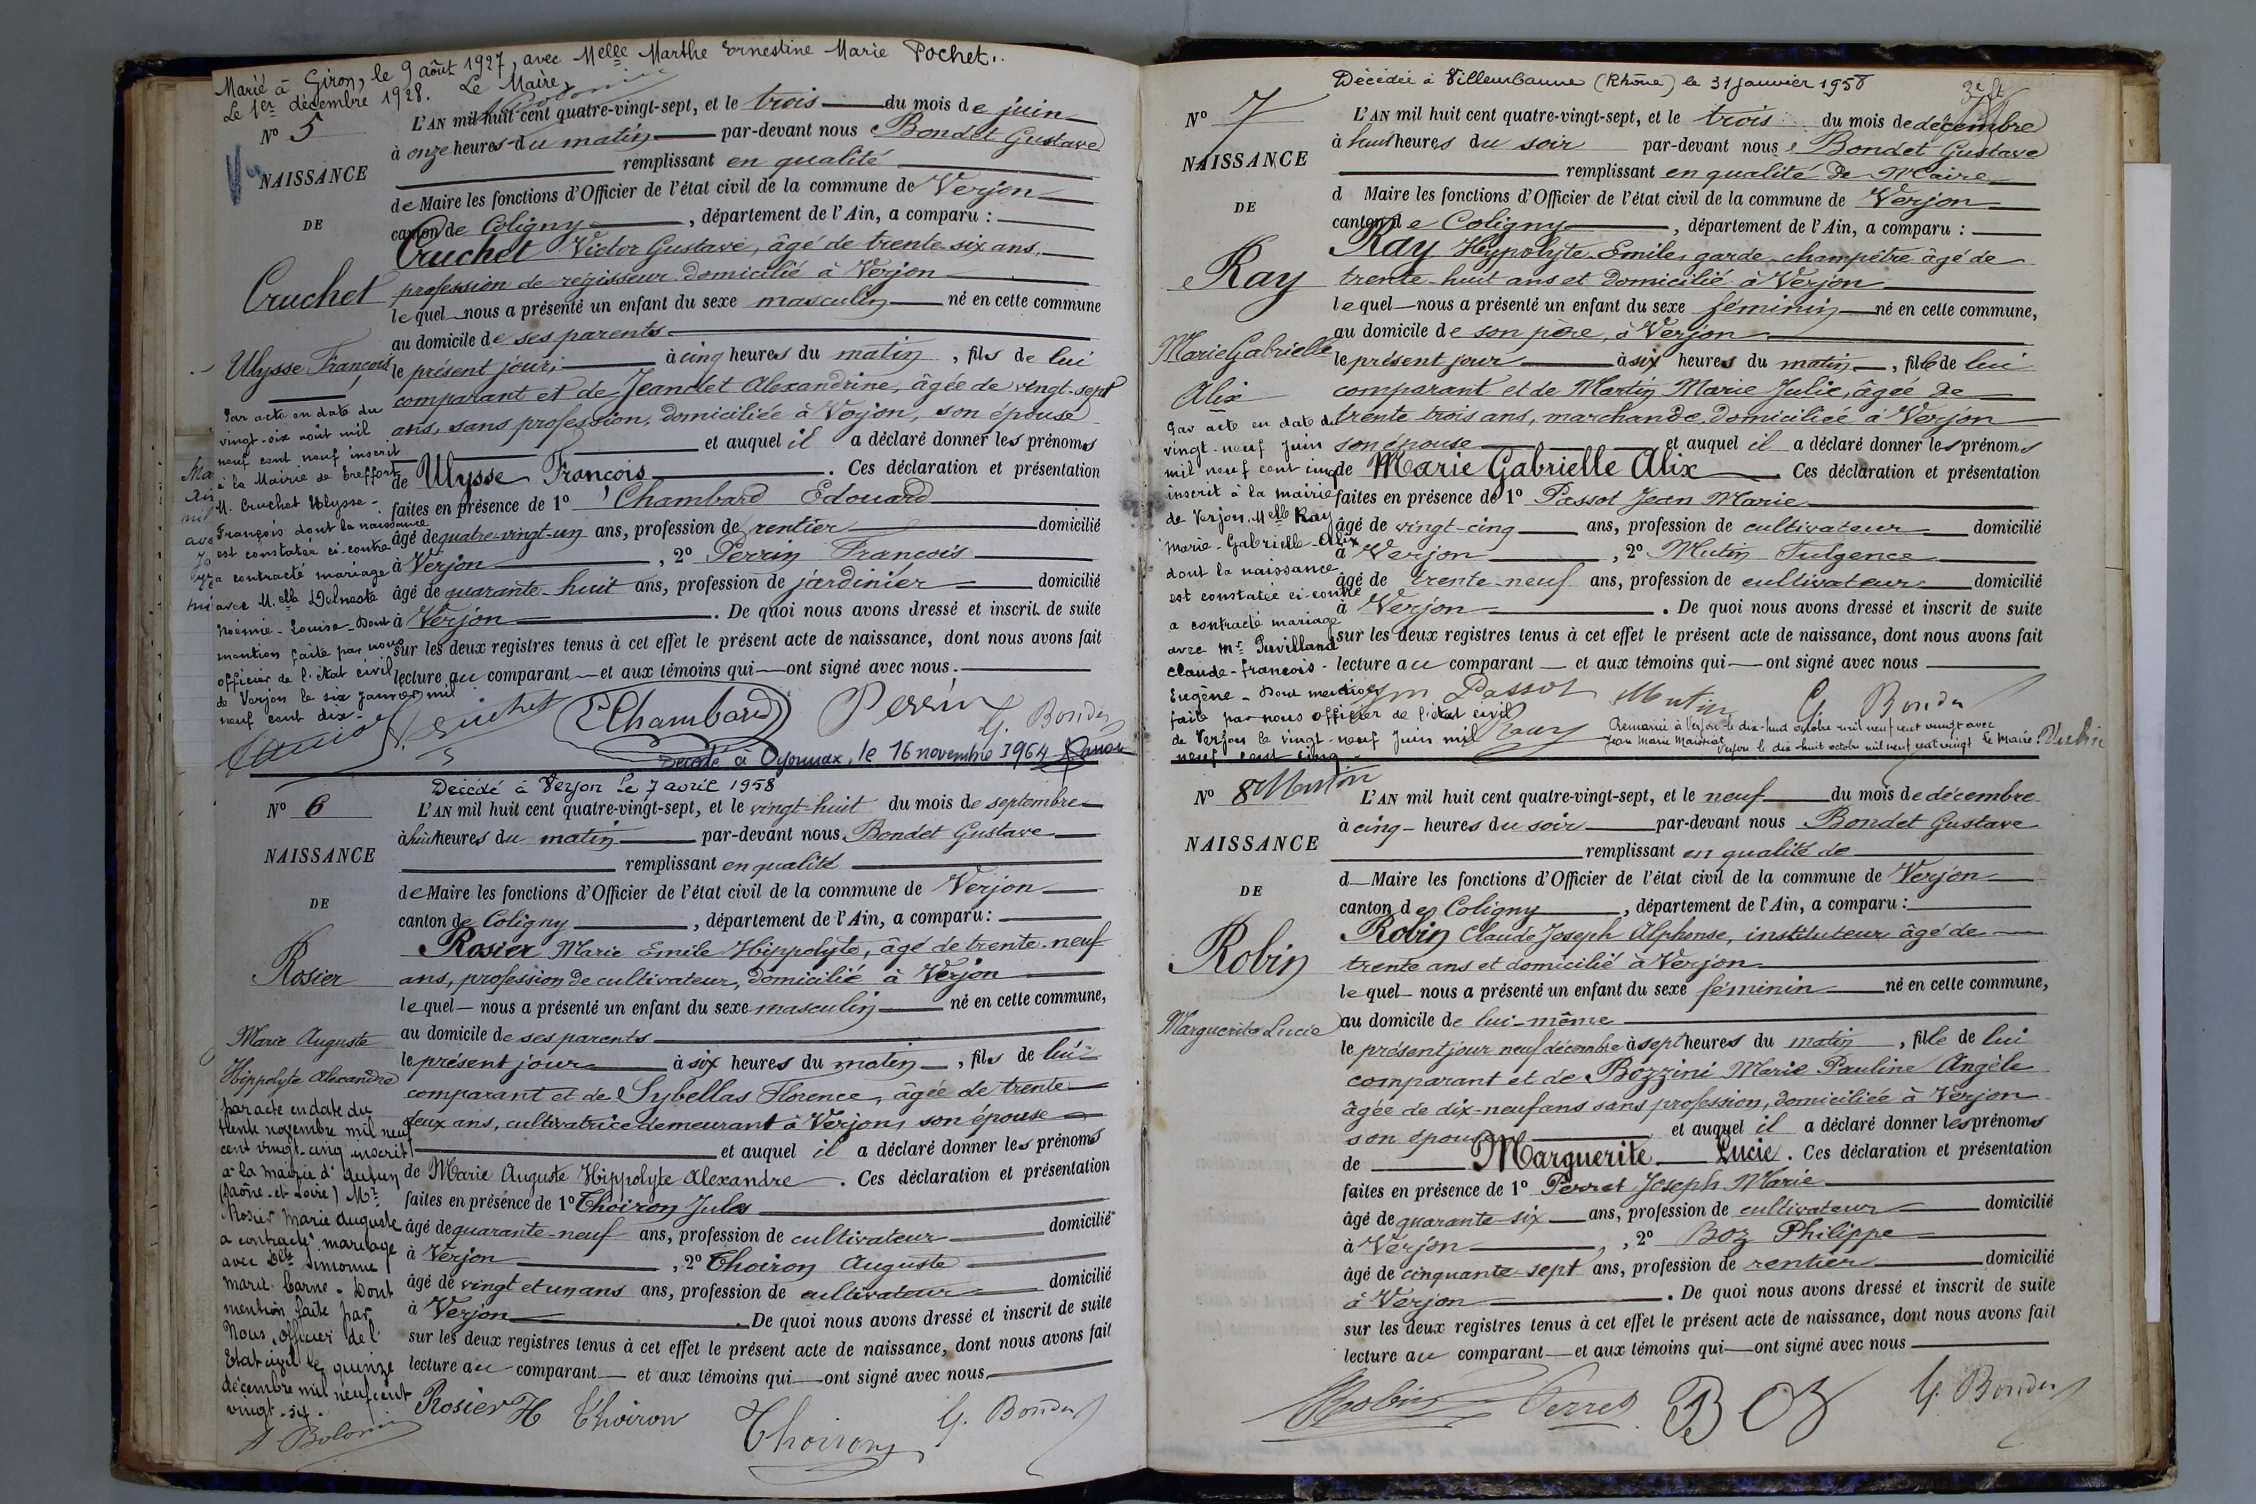 Marié à Giron, le 9 août 1927, avec Melle Marthe Ernestine Marie Pochet.
Le 1er décembre 1928. Le Maire,
No 5
NAISSANCE
DE
Cruchet
Ulysse François
Par acte en date du
vingt-six août mil
neuf cent neuf inscrit
à la Mairie de Treffort
M. Cruchet Ulysse-
François dont la naissance
est constatée ci-contre
a contracté mariage
avec M.elle
Noémie-Louise-Dont
mention faite par nous
officier de l'état civil
de Verjon le six janvier mil
neuf cent dix-
L'AN mil huit cent quatre-vingt-sept, et le trois du mois de juin
à onze heures du matin par-devant nous Bondet Gustave
remplissant en qualité
de Maire les fonctions d'Officier de l'état civil de la commune de Verjon
canton de Coligny, département de l'Ain, a comparu :
Cruchet Victor Gustave, âgé de trente-six ans,
profession de régisseur domicilié à Verjon
lequel nous a présenté un enfant du sexe masculin né en cette commune
au domicile de ses parents
le présent jour, à cinq heures du matin, fils de lui
comparant et de Jeandet Alexandrine, âgée de vingt-sept
ans, sans profession, domiciliée à Verjon, son épouse
et auquel il a déclaré donner les prénoms
de Ulysse François. Ces déclaration et présentation
faites en présence de 1o Chambard Edouard
âgé de quatre-vingt-un ans, profession de rentier domicilié
à Verjon, 2o Perrin François
âgé de quarante-huit ans, profession de jardinier domicilié
à Verjon. De quoi nous avons dressé et inscrit de suite
sur les deux registres tenus à cet effet le présent acte de naissance, dont nous avons fait
lecture au comparant et aux témoins qui ont signé avec nous.
V. Cruchet E Chambard Perrin G. Bondet
Décédé à Oyonnax, le 16 novembre 1964
Décédé à Verjon le 7 avril 1958
No 6
NAISSANCE
DE
Rosier
Marie Auguste
Hippolyte Alexandre
par acte en date du
trente novembre mil neuf
cent vingt-cinq inscrit
à la mairie d'Autun
(Saône-et-Loire) Mr
Rosier Marie Auguste
a contracté mariage
avec Delle Simonne
Marie Carne-Dont
mention faite par
Nous, officier de l'
Etat civil le quinze
décembre mil neuf cent
vingt-six.
A Bolomier
L'AN mil huit cent quatre-vingt-sept, et le vingt-huit du mois de septembre
à huit heures du matin par-devant nous Bondet Gustave
remplissant en qualité
de Maire les fonctions d'Officier de l'état civil de la commune de Verjon
canton de Coligny, département de l'Ain, a comparu :
Rosier Marie Emile Hippolyte, âgé de trente-neuf
ans, profession de cultivateur, domicilié à Verjon
lequel nous a présenté un enfant du sexe masculin né en cette commune,
au domicile de ses parents
le présent jour à six heures du matin, fils de lui
comparant et de Sybellas Florence, âgée de trente
deux ans, cultivatrice demeurant à Verjon, son épouse
et auquel il a déclaré donner les prénoms
de Marie Auguste Hippolyte Alexandre. Ces déclaration et présentation
faites en présence de 1o Thoiron Jules
âgé de quarante-neuf ans, profession de cultivateur domicilié
à Verjon, 2o Thoiron Auguste
âgé de vingt et un ans ans, profession de cultivateur domicilié
à Verjon. De quoi nous avons dressé et inscrit de suite
sur les deux registres tenus à cet effet le présent acte de naissance, dont nous avons fait
lecture au comparant et aux témoins qui ont signé avec nous
Rosier H Thoiron Thoiron G. Bondet
Décédée à Villeurbanne (Rhône) le 31 janvier 1958
No 7
NAISSANCE
DE
Ray
Marie Gabrielle
Alix
Par acte en date du
vingt-neuf juin
mil neuf cent cinq
inscrit à la mairie
de Verjon, Melle Ray
Marie-Gabrielle-Alix
dont la naissance
est constatée ci-contre
a contracté mariage
avec Mr Puvilland
Claude-François-
Eugène-Dont mention
faite par nous officier de l'état civil
de Verjon le vingt-neuf Juin mil
neuf cent cinq-
Mutin
L'AN mil huit cent quatre-vingt-sept, et le trois du mois de décembre
à huit heures du soir par-devant nous Bondet Gustave
remplissant en qualité de Maire
d Maire les fonctions d'Officier de l'état civil de la commune de Verjon
canton de Coligny, département de l'Ain, a comparu :
Ray Hyppolyte Emile, garde-champêtre âgé de
trente-huit ans et domicilié à Verjon
lequel nous a présenté un enfant du sexe féminin né en cette commune,
au domicile de son père, à Verjon
le présent jour à six heures du matin, fille de lui
comparant et de Martin Marie Julie, âgée de
trente trois ans, marchande, domiciliée à Verjon
son épouse et auquel il a déclaré donner les prénoms
de Marie Gabrielle Alix Ces déclaration et présentation
faites en présence de 1o Passot Jean Marie
âgé de vingt-cinq ans, profession de cultivateur domicilié
à Verjon, 2o Mutin Fulgence
âgé de trente-neuf ans, profession de cultivateur domicilié
à Verjon. De quoi nous avons dressé et inscrit de suite
sur les deux registres tenus à cet effet le présent acte de naissance, dont nous avons fait
lecture au comparant et aux témoins qui ont signé avec nous
Jm Passot Mutin G. Bondet
Ray
Remariée à Verjon le dix-huit octobre mil neuf cent vingt avec
Jean Marie
Verjon le dix-huit octobre mil neuf cent vingt Le Maire:
No 8
NAISSANCE
DE
Robin
Marguerite Lucie
L'AN mil huit cent quatre-vingt-sept, et le neuf du mois de décembre
à cinq heures du soir par-devant nous Bondet Gustave
remplissant en qualité de
d Maire les fonctions d'Officier de l'état civil de la commune de Verjon
canton de Coligny, département de l'Ain, a comparu :
Robin Claude Joseph Alphonse, instituteur âgé de
trente ans et domicilié à Verjon
lequel nous a présenté un enfant du sexe féminin né en cette commune,
au domicile de lui-même
le présent jour neuf décembre à sept heures du matin, fille de lui
comparant et de Bozzini Marie Pauline Angèle
âgée de dix-neuf ans sans profession, domiciliée à Verjon
son épouse et auquel il a déclaré donner les prénoms
de Marguerite Lucie. Ces déclaration et présentation
faites en présence de 1o Perret Joseph Marie
âgé de quarante-six ans, profession de cultivateur domicilié
à Verjon, 2o Boz Philippe
âgé de cinquante-sept ans, profession de rentier domicilié
à Verjon. De quoi nous avons dressé et inscrit de suite
sur les deux registres tenus à cet effet le présent acte de naissance, dont nous avons fait
lecture au comparant et aux témoins qui ont signé avec nous
Robin Perret Boz G. Bondet